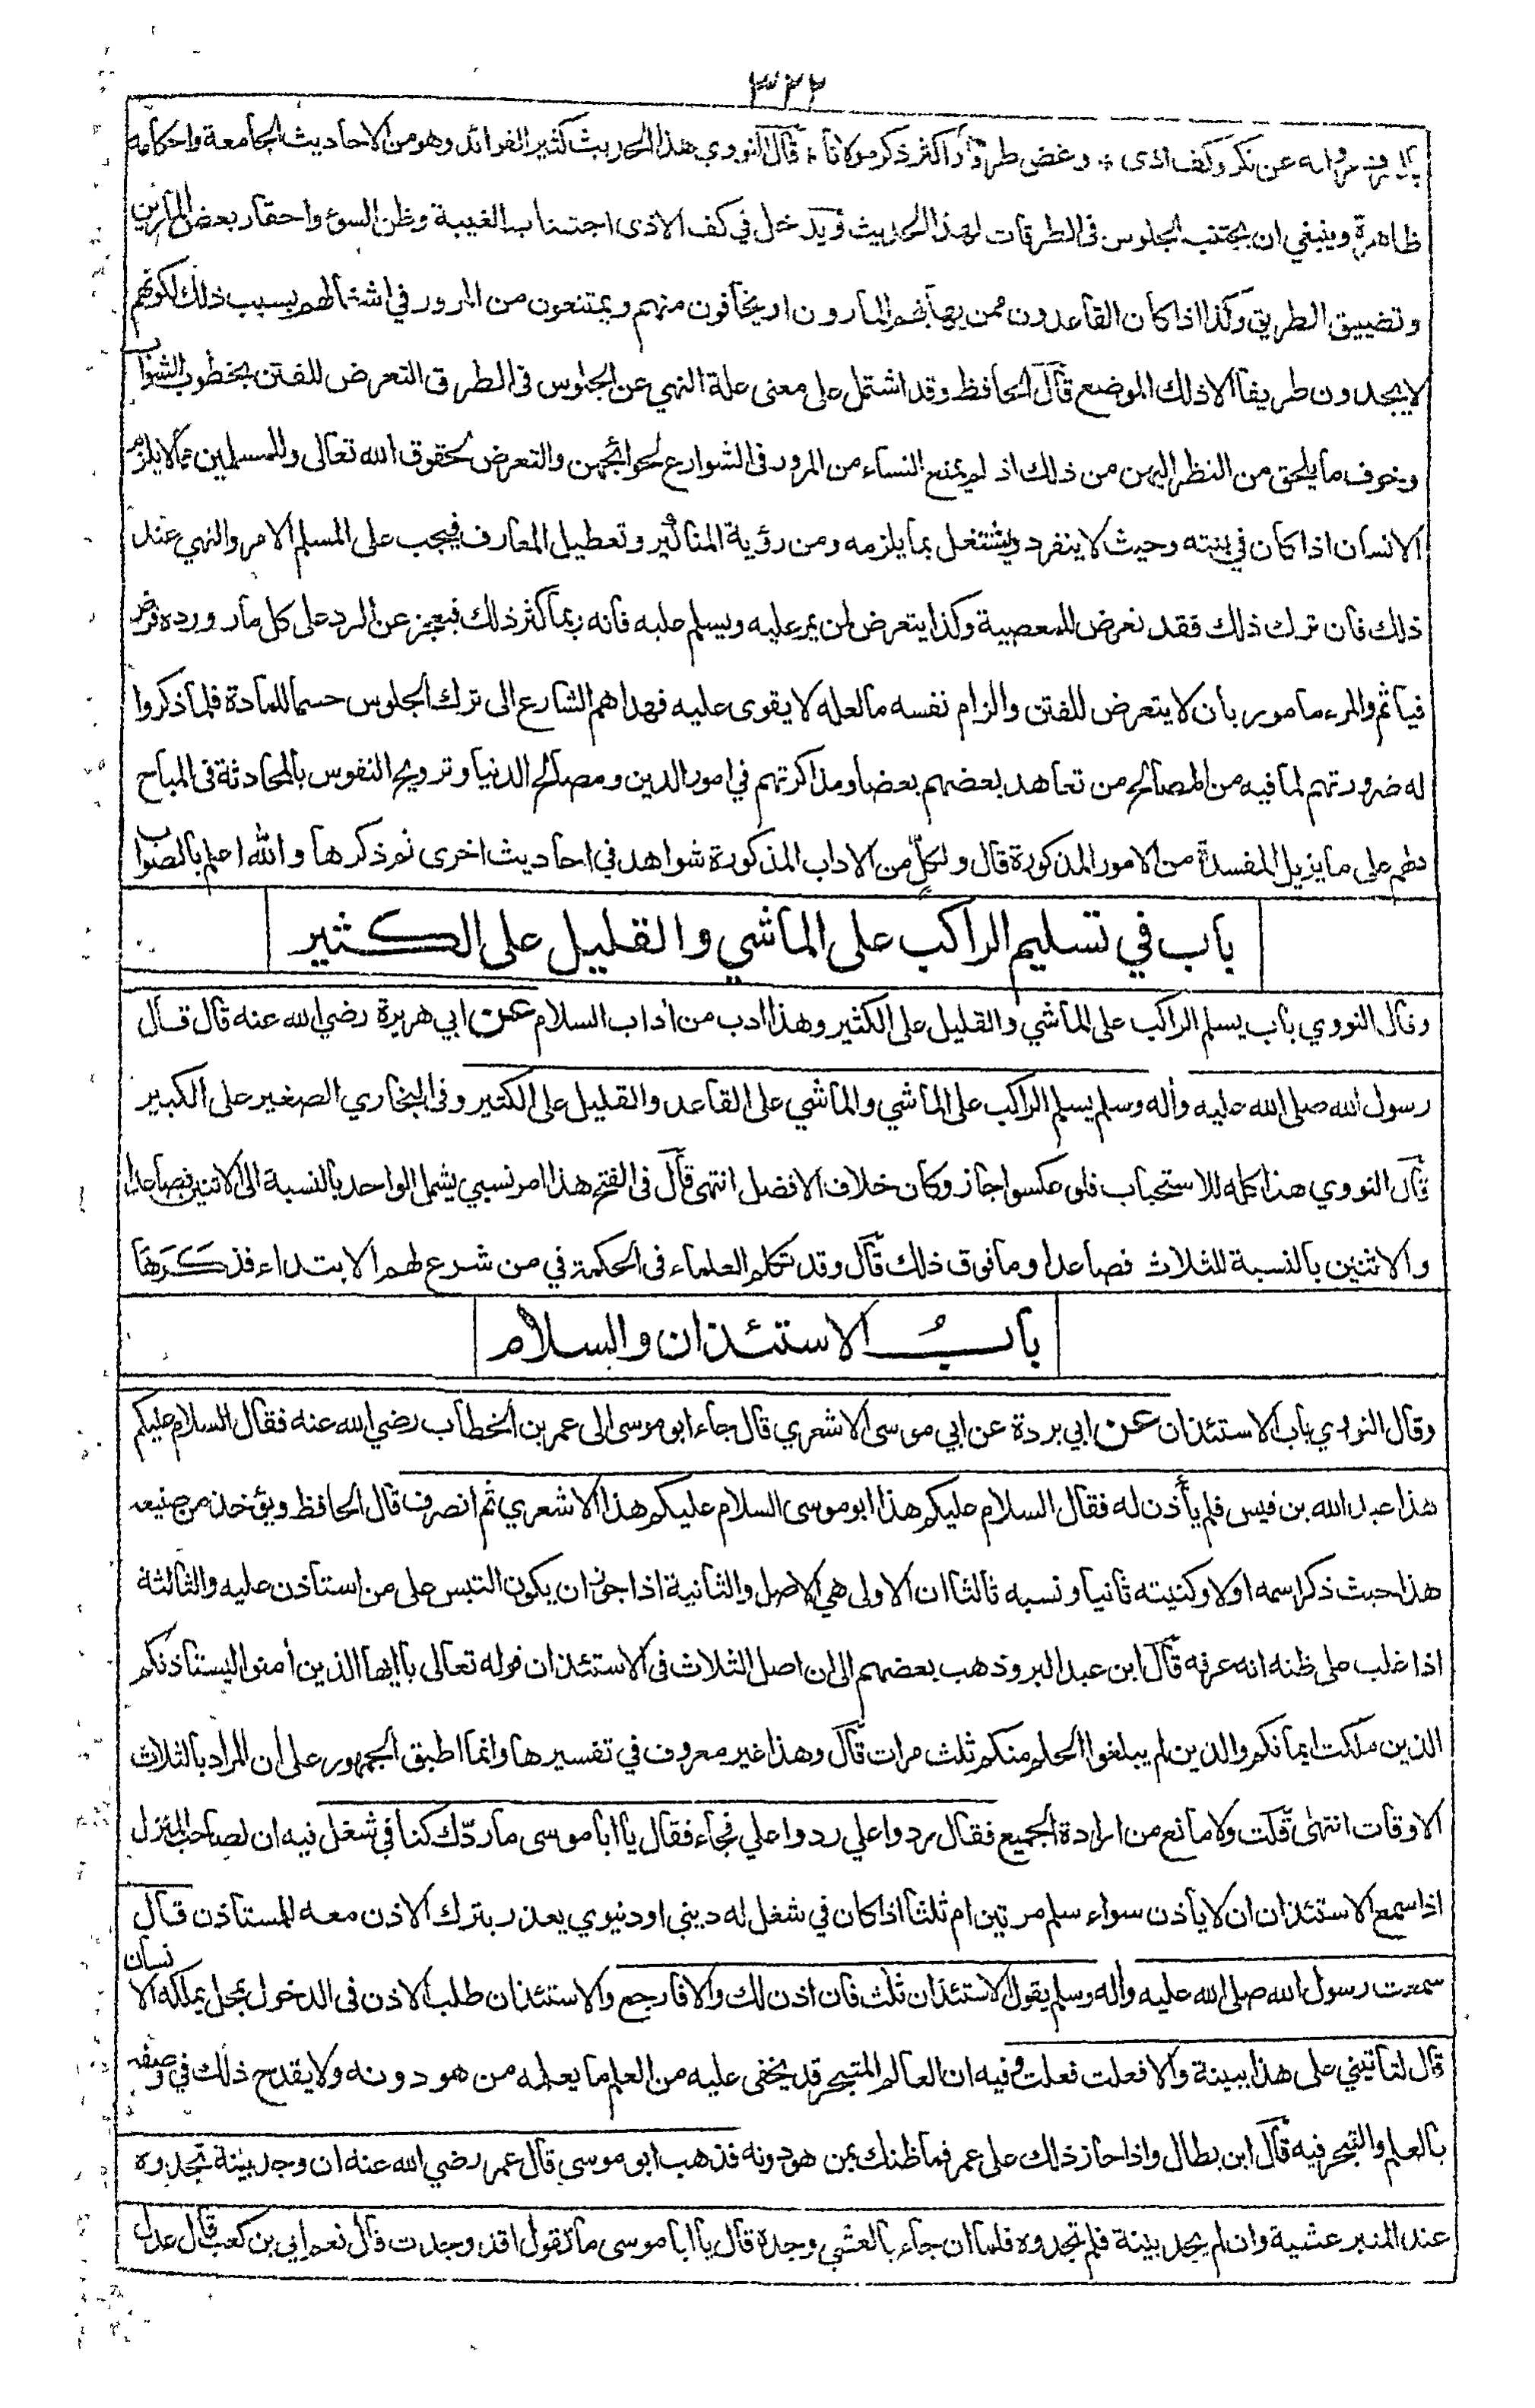 ٣٢٢
وانه عن نكر وكف اذى * وغض طرفا واكثر ذكر مولانا * قال النووي هذا الحديث كثير الفوائد وهو من الاحاديث الجامعة واحكامه
ظاهرة وينبغي ان يجتنب الجلوس فى الطرقات لهذا الحديث ويدخل في كف الاذى اجتناب الغيبة وظن السوء واحقار بعض المارين
وتضييق الطريق وكذا اذا كان القاعدون ممن يهابهم المارون او يخافون منهم ويمتنعون من المرور في اشغالهم بسبب ذلك لكونهم
لا يجدون طريقا الا ذلك الموضع قال الحافظ وقد اشتمل على معنى علة النهي عن الجلوس فى الطرق التعرض للفتن بخطور الشواب
وخوف ما يلحق من النظر اليهن من ذلك اذ لم يمنع النساء من المرور فى الشوارع لحوائجهن والتعرض لحقوق الله تعالى وللمسلمين مما لا يلزم
الانسان اذا كان في بيته وحيث لا ينفرد ويشتغل بما يلزمه ومن رؤية المناكير وتعطيل المعارف فيجب على المسلم الامر والنهي عند
ذلك فان ترك ذلك فقد تعرض للمعصية وكذا يتعرض لمن يمر عليه ويسلم عليه فانه ربما كثر ذلك فيعجز عن الرد على كل مار ورده فرض
فيأثم والمرء مامور بان لا يتعرض للفتن والزام نفسه ما لعله لا يقوى عليه فهداهم الشارع الى ترك الجلوس حسما للمادة فلما ذكروا
له ضرورتهم لما فيه من المصالح من تعاهد بعضهم بعضا ومذاكرتهم في امور الدين ومصالح الدنيا وترويح النفوس بالمحادثة فى المباح
دلهم على ما يزيل المفسدة من الامور المذكورة قال ولكل من الاداب المذكورة شواهد في احاديث اخرى ثم ذكرها والله اعلم بالصواب
باب في تسليم الراكب على الماشي والقليل على الكثير
وقال النووي باب يسلم الراكب على الماشي والقليل على الكثير وهذا ادب من أداب السلام عن ابي هريرة رضي الله عنه قال قال
رسول الله صلى الله عليه وأله وسلم يسلم الراكب على الماشي والماشي على القاعد والقليل على الكثير وفى البخاري الصغير على الكبير
قال النووي هذا كله للاستحباب فلو عكسوا جاز وكان خلاف الافضل انتهى قال فى الفتح هذا امر نسبي يشمل الواحد بالنسبة الى الاثنين فصاعدا
والاثنين بالنسبة للثلاث فصاعدا وما فوق ذلك قال وقد تكلم العلماء فى الحكمة في من شرع لهم الابتداء فذكرها
باب الاستئذان والسلام
وقال النووي باب الاستئذان عن ابي بردة عن ابي موسى الاشعري قال جاء ابو موسى الى عمر بن الخطاب رضي الله عنه فقال السلام عليكم
هذا عبد الله بن قيس فلم يأذن له فقال السلام عليكم هذا ابو موسى السلام عليكم هذا الاشعري ثم انصرف قال الحافظ ويؤخذ من صنيعه
هذا حيث ذكر اسمه اولا وكنيته ثانيا ونسبه ثالثا ان الاولى هي الاصل والثانية اذا جوز ان يكون التبس على من استاذن عليه والثالثة
اذا غلب على ظنه انه عرفه قال ابن عبد البر وذهب بعضهم الى ان اصل الثلاث فى الاستئذان قوله تعالى يا ايها الذين أمنوا ليستاذنكم
الذين ملكت ايمانكم والذين لم يبلغوا الحلم منكم ثلث مرات قال وهذا غير معروف في تفسيرها وانما اطبق الجمهور على ان المراد بالثلاث
الاوقات انتهى قلت ولا مانع من ارادة الجميع فقال ردوا علي ردوا علي فجاء فقال يا ابا موسى ما ردّك كنا في شغل فيه ان لصاحب المنزل
اذا سمع الاستئذان ان لا ياذن سواء سلم مرتين ام ثلثا اذا كان في شغل له ديني او دنيوي يعذر بترك الاذن معه للمستاذن قال
سمعت رسول الله صلى الله عليه وأله وسلم يقول الاستئذان ثلث فان اذن لك والا فارجع والاستئذان طلب الاذن فى الدخول لمحل يملكه الانسان
قال لتاتيني على هذا ببينة والا فعلت فعلت وفيه ان العالم المتبحر قد يخفى عليه من العلم ما يعلمه من هو دونه ولا يقدح ذلك في وصفه
بالعلم والتبحر فيه قال ابن بطال واذا جاز ذلك على عمر فما ظنك بمن هو دونه فذهب ابو موسى قال عمر رضي الله عنه ان وجد بينة تجدوه
عند المنبر عشية وان لم يجد بينة فلم تجدوه فلما ان جاء بالعشي وجده قال يا ابا موسى ما تقول اقد وجدت قال نعم ابي بن كعب قال عدل